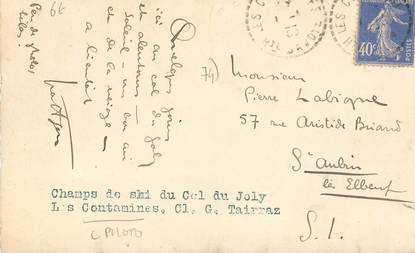 Quelques jours
ici au col du Joly
et alentours -
soleil - un bon air
et de la neige -
a bientôt
Peu de photos,
66
74)
Monsieur
Pierre Labigne
57 rue Aristide Briand
St Aubin
lès Elbeuf
S. I.
40c
POSTES
Champs de ski du Col du Joly
Les Contamines. Cl. G. Tairraz
C PHOTO